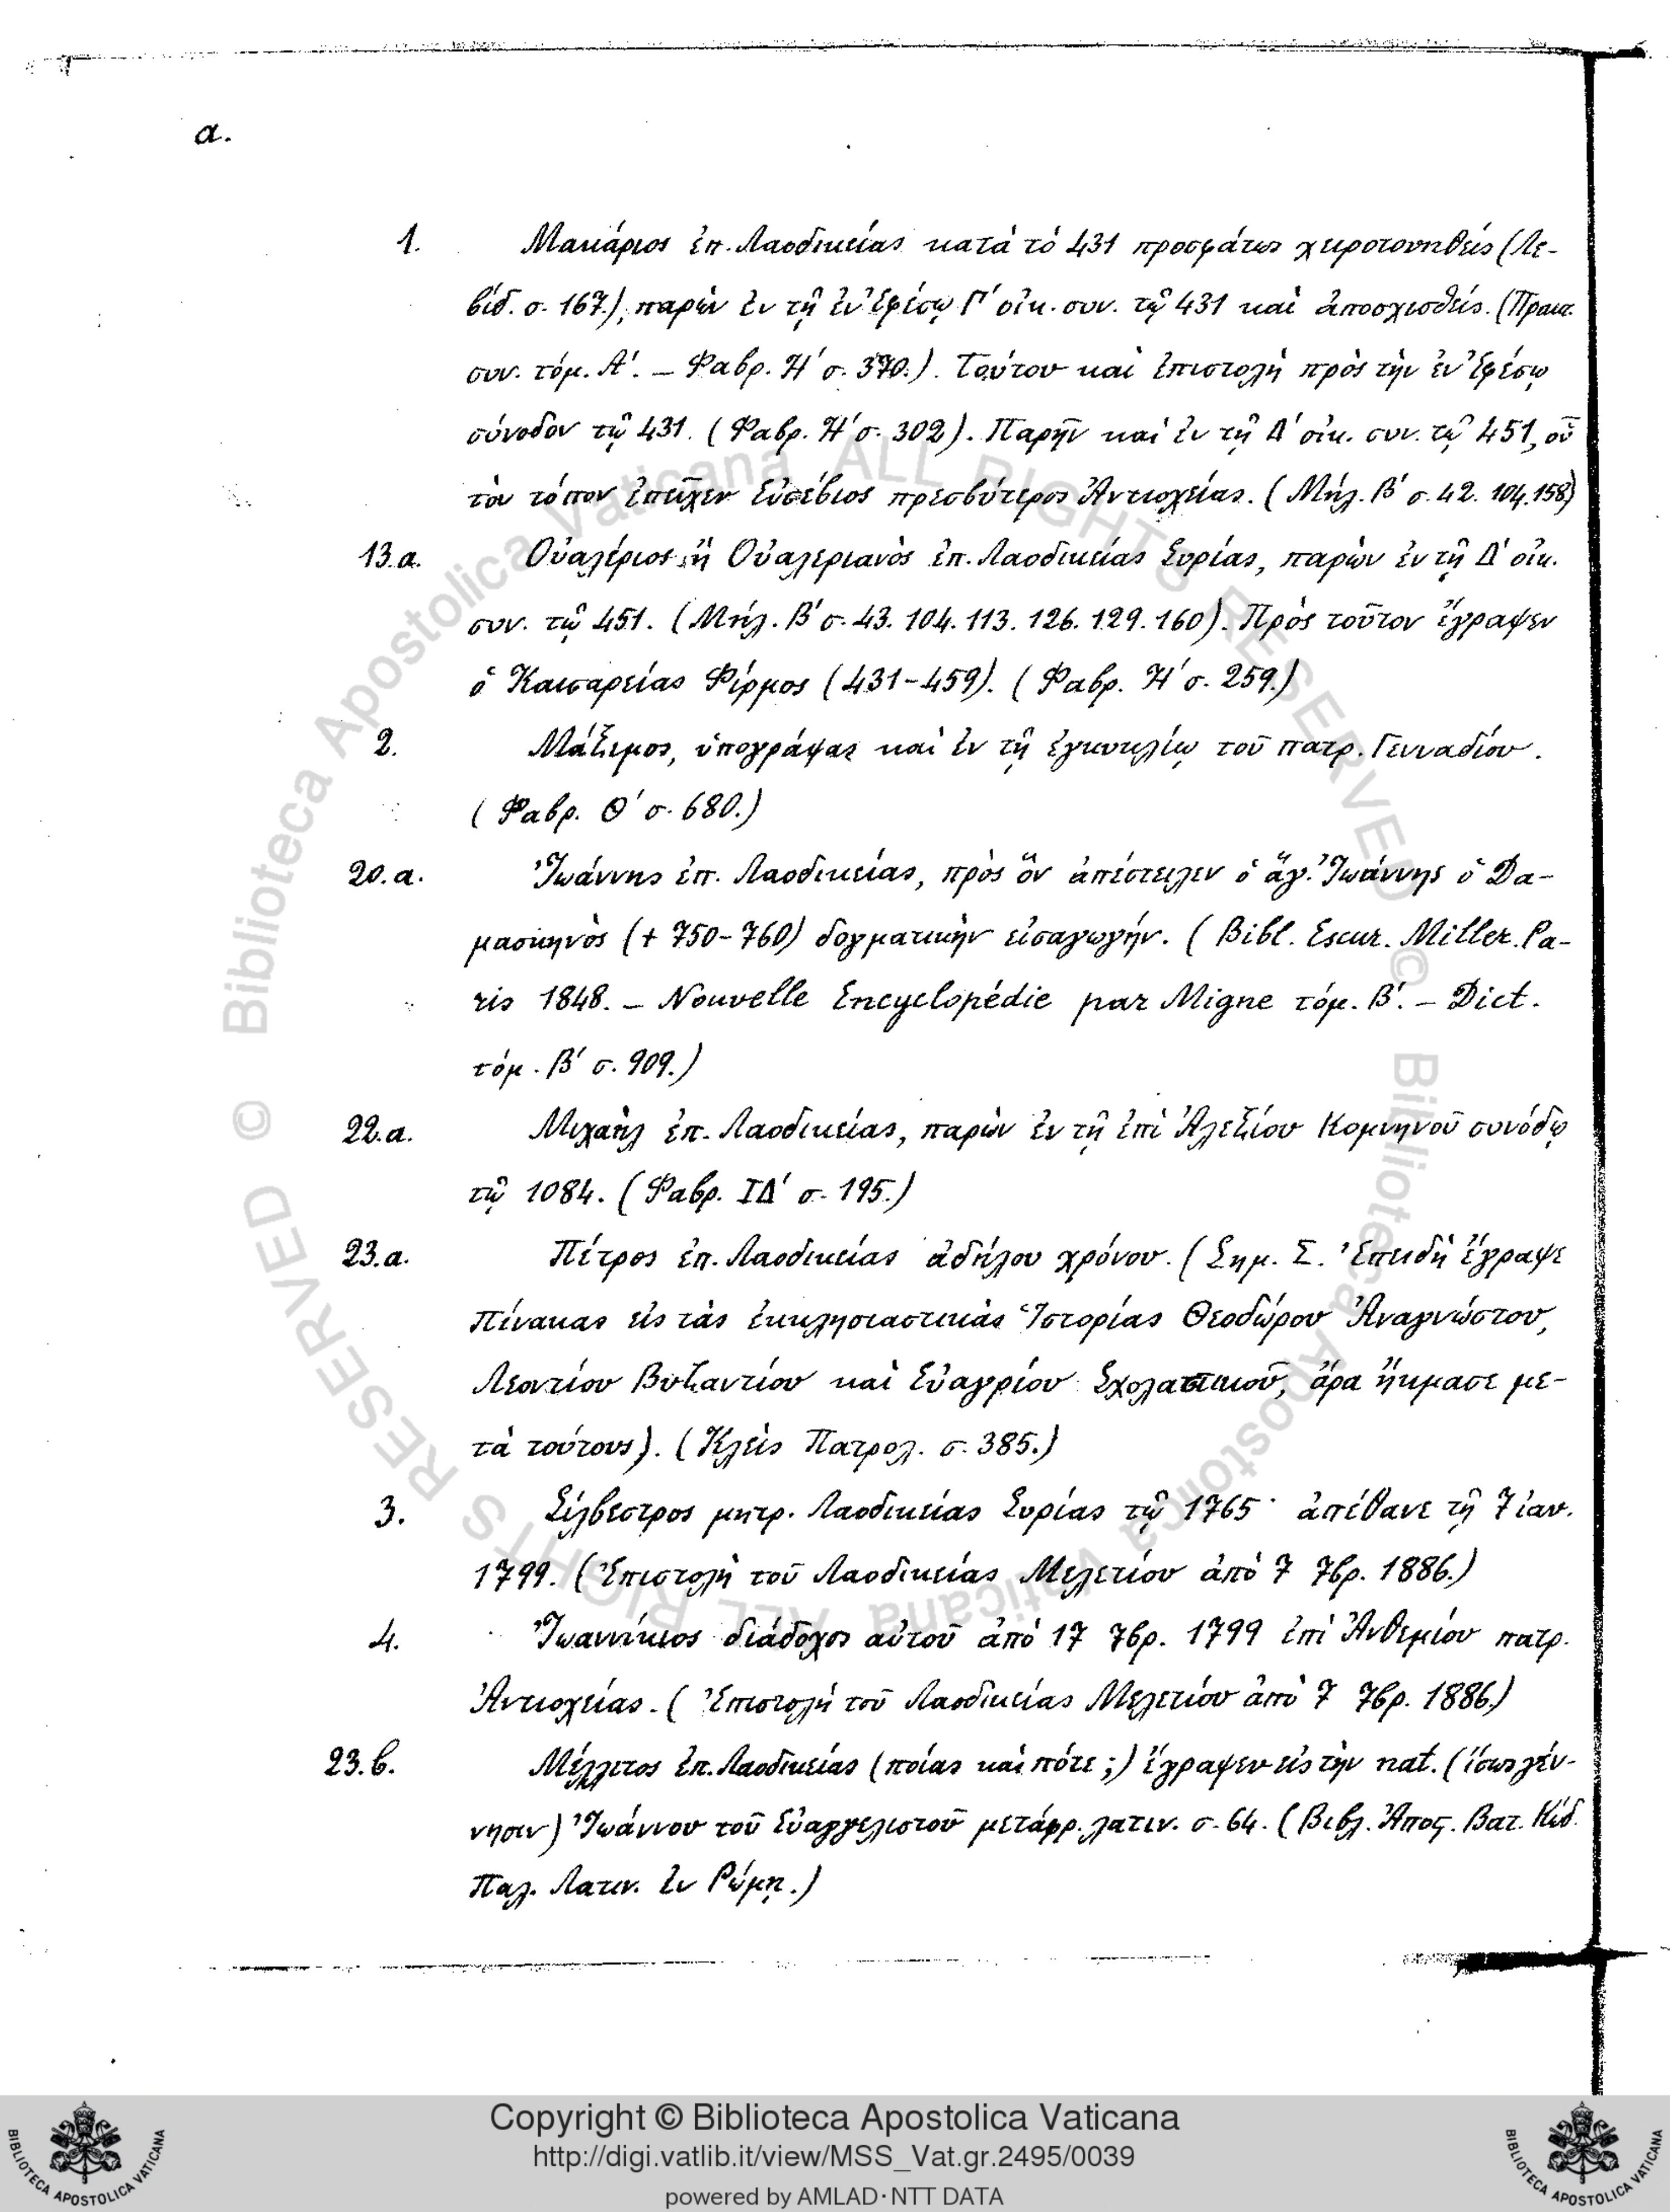 α.
1. Μακάριος ἐπ. Λαοδικείας κατὰ τὸ 431 προσφάτως χειροτονηθείς (Λε-
βίδ. σ. 167.), παρὼν ἐν τῇ ἐν Ἐφέσῳ Γ΄ οἰκ. συν. τῷ 431 καὶ ἀποσχισθείς. (Πρακτ.
συν. τόμ. Α΄. – Φαβρ. Η΄ σ. 370.). Τούτου καὶ ἐπιστολὴ πρὸς τὴν ἐν Ἐφέσῳ
σύνοδον τῷ 431. (Φαβρ. Η΄ σ. 302). Παρῆν καὶ ἐν τῇ Δ΄ οἰκ. συν. τῷ 451, οὗ
τὸν τόπον ἐπεῖχεν Εὐσέβιος πρεσβύτερος Ἀντιοχείας. (Μήλ. Β΄ σ. 42. 104. 158)
13.α. Οὐαλέριος ἢ Οὐαλεριανὸς ἐπ. Λαοδικείας Συρίας, παρὼν ἐν τῇ Δ΄ οἰκ.
συν. τῷ 451. (Μήλ. Β΄ σ. 43. 104. 113. 126. 129. 160). Πρὸς τοῦτον ἔγραψεν
ὁ Καισαρείας Φίρμος (431-459). (Φαβρ. Η΄ σ. 259.)
2. Μάξιμος, ὑπογράψας καὶ ἐν τῇ ἐγκυκλίῳ τοῦ πατρ. Γενναδίου.
(Φαβρ. Θ΄ σ. 680.)
20.α. Ἰωάννης ἐπ. Λαοδικείας, πρὸς ὃν ἀπέστειλεν ὁ ἅγ. Ἰωάννης ὁ Δα-
μασκηνὸς (+ 750-760) δογματικὴν εἰσαγωγήν. (Bibl. Escur. Miller. Pa-
ris 1848. – Nouvelle Encyclopédie par Migne τόμ. Β΄. – Dict.
τόμ. Β΄ σ. 909.)
22.α. Μιχαὴλ ἐπ. Λαοδικείας, παρὼν ἐν τῇ ἐπὶ Ἀλεξίου Κομνηνοῦ συνόδῳ
τῷ 1084. (Φαβρ. ΙΔ΄ σ. 195.)
23.α. Πέτρος ἐπ. Λαοδικείας ἀδήλου χρόνου. (Σημ. Σ. Ἐπειδὴ ἔγραψε
πίνακας εἰς τὰς ἐκκλησιαστικὰς Ἱστορίας Θεοδώρου Ἀναγνώστου,
Λεοντίου Βυζαντίου καὶ Εὐαγρίου Σχολαστικοῦ, ἄρα ἤκμασε με-
τὰ τούτους). (Κλεὶς Πατρολ. σ. 385.)
3. Σίλβεστρος μητρ. Λαοδικείας Συρίας τῷ 1765· ἀπέθανε τῇ 7 ἰαν.
1799. (Ἐπιστολὴ τοῦ Λαοδικείας Μελετίου ἀπὸ 7 7βρ. 1886.)
4. Ἰωαννίκιος διάδοχος αὐτοῦ ἀπὸ 17 7βρ. 1799 ἐπὶ Ἀνθεμίου πατρ.
Ἀντιοχείας. (Ἐπιστολὴ τοῦ Λαοδικείας Μελετίου ἀπὸ 7 7βρ. 1886.)
23.b. Μέλλιτος ἐπ. Λαοδικείας (ποίας καὶ πότε;) ἔγραψεν εἰς τὴν nat. (ἴσως γέν-
νησιν) Ἰωάννου τοῦ Εὐαγγελιστοῦ μετάφρ. λατιν. σ. 64. (Βιβλ. Ἀποστ. Βατ. Κώδ.
Παλ. Λατιν. ἐν Ῥώμῃ.)
© Biblioteca Apostolica Vaticana ALL RIGHTS RESERVED ©
Biblioteca Apostolica Vaticana ALL RIGHTS RESERVED
Copyright © Biblioteca Apostolica Vaticana
http://digi.vatlib.it/view/MSS_Vat.gr.2495/0039
powered by AMLAD·NTT DATA
BIBLIOTECA APOSTOLICA VATICANA
BIBLIOTECA APOSTOLICA VATICANA